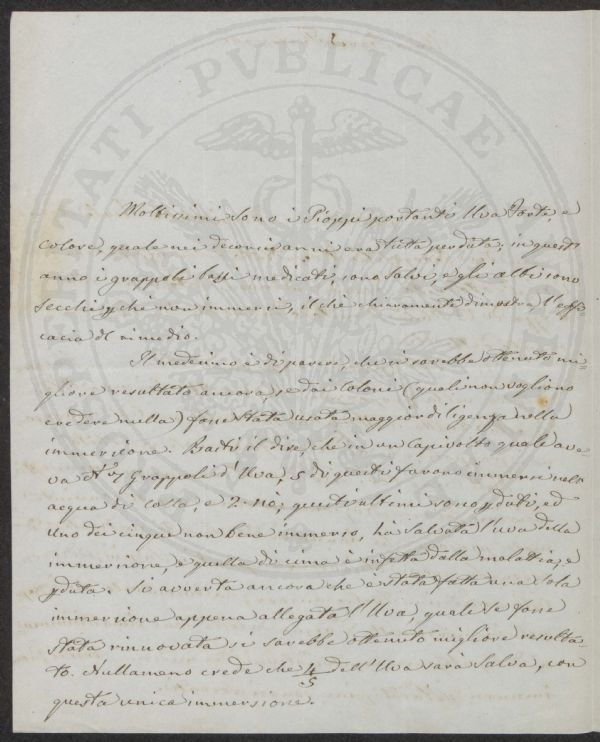 Moltissimi sono i Pioppi portanti Uva forte, e
colore, quale nei decorsi anni era tutta perduta; in quest'
anno i grappoli bassi medicati, sono salvi, e gli altri sono
secchi p chè non immersi, il che chiaramente dimostra l'effi-
cacia del rimedio.
Il medesimo è di parere, che si sarebbe ottenuto mi-
gliore resultato ancora, se dai Coloni (quali non vogliono
credere nulla) fosse stata usata maggior diligenza nella
immersione. Basti il dire, che in un Capivolto quale ave-
va N.° 7 Grappoli d'Uva, 5 di questi furono immersi nell'
acqua di colla, e 2 nò; questi ultimi sono p duti, ed
uno dei cinque non bene immerso, hà salvata l'uva della
immersione, e quella di cima è infetta dalla malattia, e
p duta. Si avverta ancora che è stata fatta una sola
immersione appena allegata l'Uva, quale se fosse
stata rinnovata si sarebbe ottenuto migliore resulta-
to. Nullameno crede che 4/5 dell'Uva sarà salva, con
questa unica immersione.